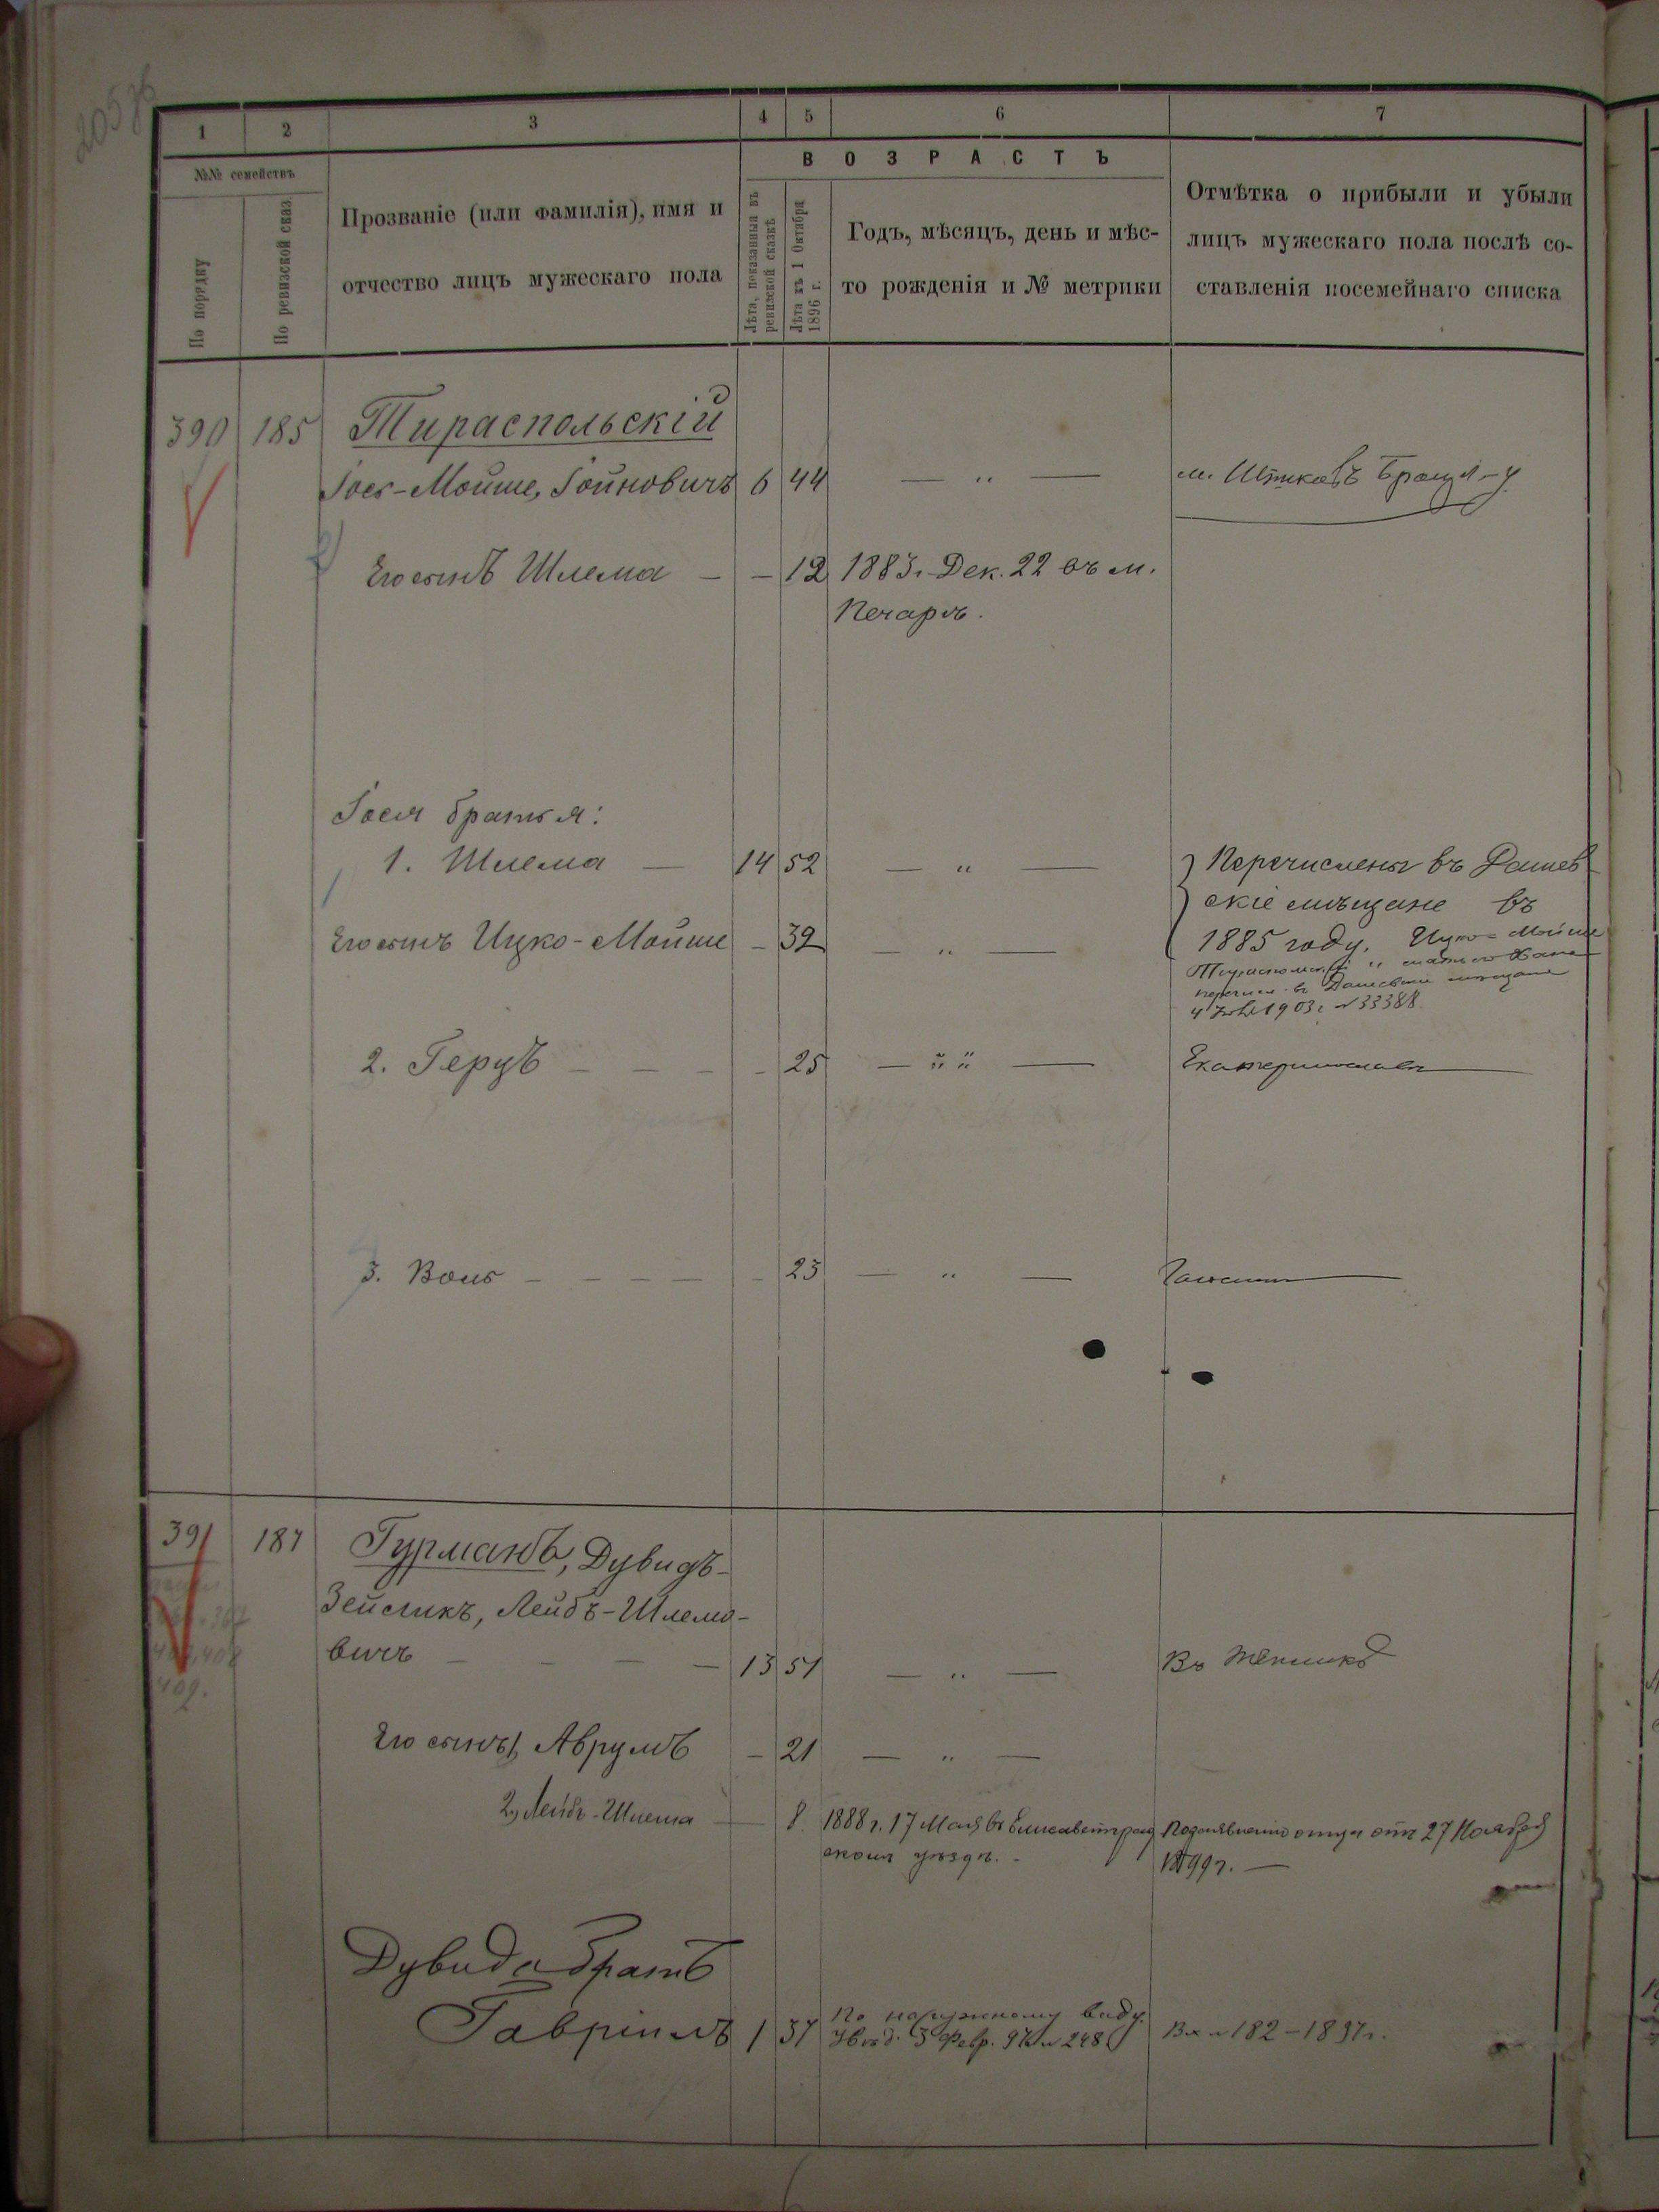 1 2 3 4 5 6 7
№№ семействъ
По порядку
По ревизской сказ.
Прозваніе (или фамилія), имя и
отчество лицъ мужескаго пола
ВОЗРАСТЪ
Лѣта, показанныя въ
ревизской сказкѣ
Лѣта къ 1 Октября
1896 г.
Годъ, мѣсяцъ, день и мѣс-
то рожденія и № метрики
Отмѣтка о прибыли и убыли
лицъ мужескаго пола послѣ со-
ставленія посемейнаго списка
390 185 Тираспольскій
Іось-Мойше, Іойновичъ 6 44 — " — м.
Его сынъ Шлема — — 12 1883 г. Дек. 22 въ м.
Печарѣ.
Іося братья:
1. Шлема — 14 52 — " — Перечислены въ Дашев-
скіе мѣщане въ
Его сынъ Ицко-Мойше — 32 — " — 1885 году. Ицко-Мойше
Дашевскіе мѣщане
1903 г. № 33388
2. Герцъ — — — — 25 — " " —
3. Воль — — — — — 23 — " —
391 187 Гурманъ, Дувидъ-
Зейсликъ, Лейбъ-Шлемо-
вичъ — — — — 13 51 — " — Въ
408
409.
Его сынъ 1, Аврумъ — 21 — " —
2, Лейбъ-Шлема — 8. 1888 г. 17 Мая въ Елисаветград-
скомъ уѣздѣ. -
По заявленію отца отъ 27 Ноября
1899 г. —
Дувида братъ
Гавріилъ 1 37 По наружному виду.
3 Февр. 97 № 248
Вх № 182 - 1897 г.